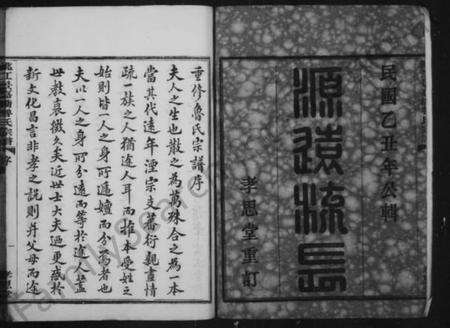 民國乙丑年公輯
源遠流長
孝思堂重訂
重修魯氏宗譜序
夫人之生也散之為萬殊合之為一本
當其代遠年湮宗支蕃衍親盡情
疏一族之人猶途人耳而推本受姓之
始則皆一人之身所遞嬗而分焉者也
夫以一人之身而分遠而等於途人蓋
世教衰微久矣近世士大夫過更張於
新文化昌言非孝之說則并父母而途